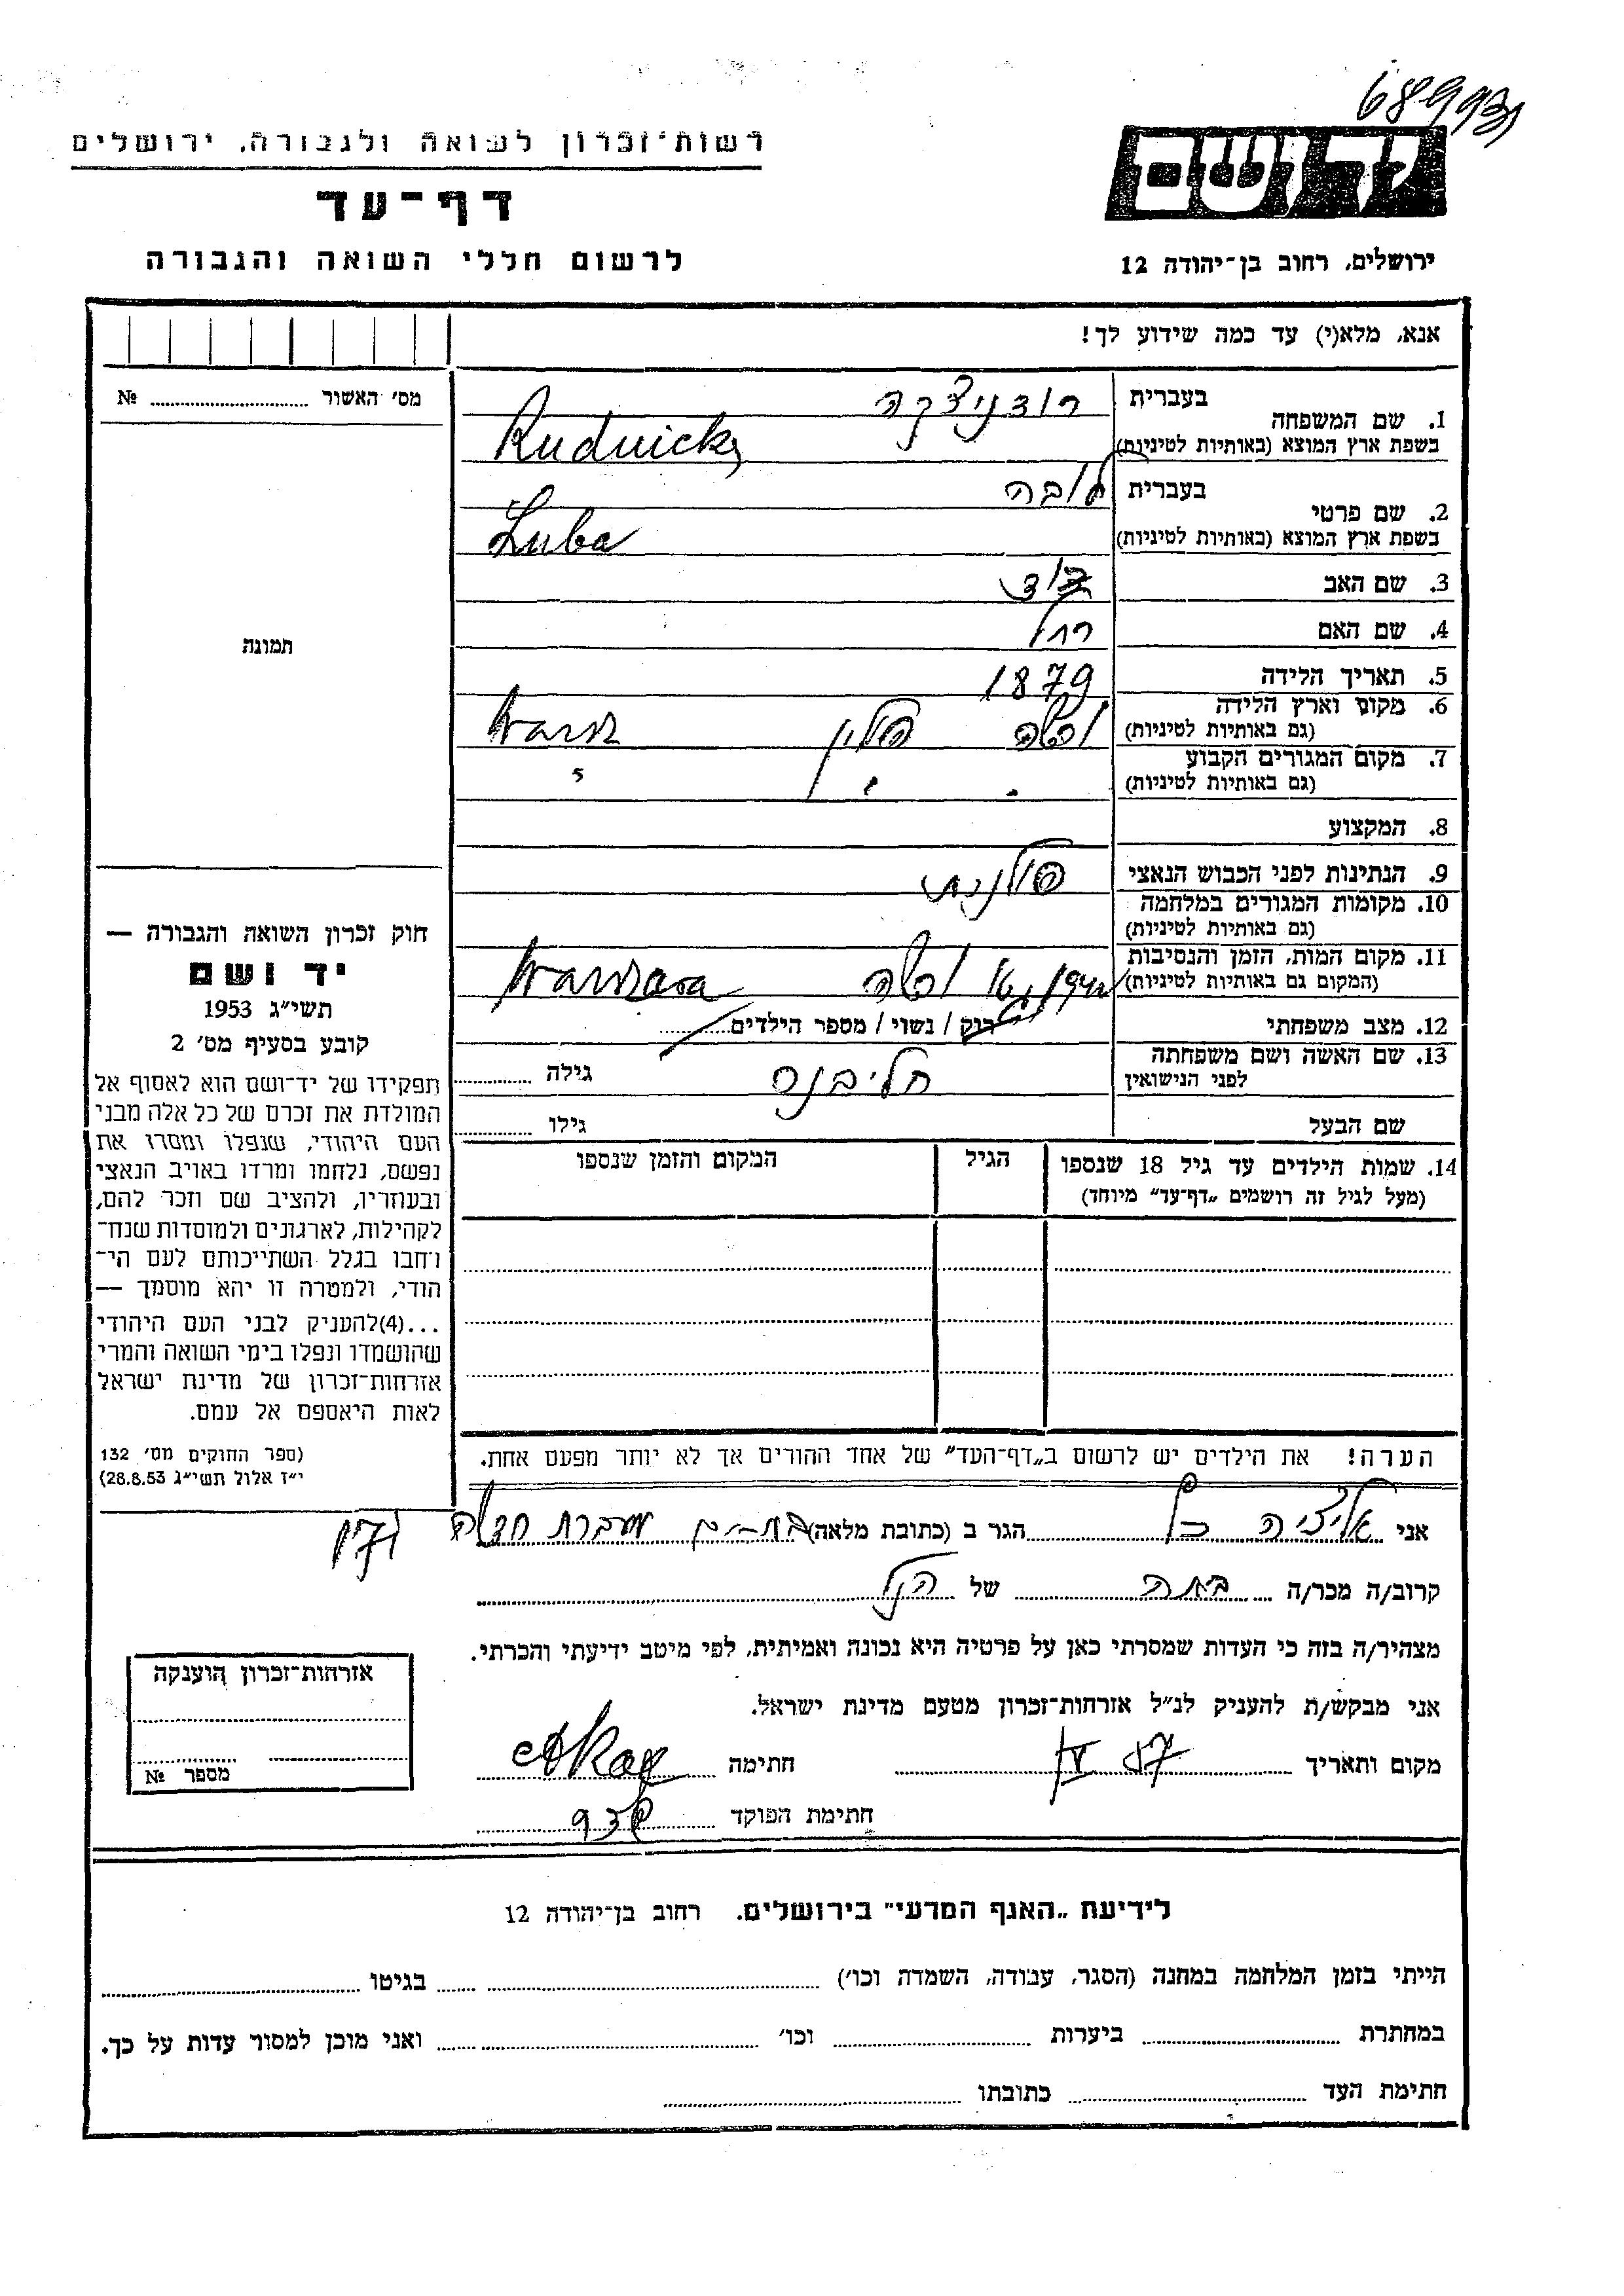 689931
רשות־זכרון לשואה ולגבורה, ירושלים
יד ושם
דף־עד
לרשום חללי השואה והגבורה
ירושלים, רחוב בן־יהודה 12
אנא, מלא(י) עד כמה שידוע לך!
מס׳ האשור № 
1. שם המשפחה
בעברית רודניצקה
בשפת ארץ המוצא (באותיות לטיניות) Rudnicka
2. שם פרטי
בעברית לובה
בשפת ארץ המוצא (באותיות לטיניות) Luba
3. שם האב דוד
4. שם האם רחל
5. תאריך הלידה 1879
6. מקום וארץ הלידה ורשה פולין
(גם באותיות לטיניות)
7. מקום המגורים הקבוע
(גם באותיות לטיניות)
8. המקצוע
9. הנתינות לפני הכבוש הנאצי פולנית
10. מקומות המגורים במלחמה
(גם באותיות לטיניות)
11. מקום המות, הזמן והנסיבות
(המקום גם באותיות לטיניות) ורשה Warszawa
12. מצב משפחתי רוק / נשוי / מספר הילדים
13. שם האשה ושם משפחתה
לפני הנישואין גילה
שם הבעל גילו
14. שמות הילדים עד גיל 18 שנספו
(מעל לגיל זה רושמים „דף־עד״ מיוחד)
הגיל
המקום והזמן שנספו
תמונה
חוק זכרון השואה והגבורה —
יד ושם
תשי״ג 1953
קובע בסעיף מס׳ 2
תפקידו של יד־ושם הוא לאסוף אל
המולדת את זכרם של כל אלה מבני
העם היהודי, שנפלו ומסרו את
נפשם, נלחמו ומרדו באויב הנאצי
ובעוזריו, ולהציב שם וזכר להם,
לקהילות, לארגונים ולמוסדות שנח־
רחבו בגלל השתייכותם לעם הי־
הודי, ולמטרה זו יהא מוסמך —
...(4)להעניק לבני העם היהודי
שהושמדו ונפלו בימי השואה והמרי
אזרחות־זכרון של מדינת ישראל
לאות היאספם אל עמם.
(ספר החוקים מס׳ 132
י״ז אלול תשי״ג 28.8.53)
הערה! את הילדים יש לרשום ב„דף־העד״ של אחד ההורים אך לא יותר מפעם אחת.
אני הגר ב (כתובת מלאה) בת־ים מעברת חדשה
קרוב/ה מכר/ה של הנ״ל
מצהיר/ה בזה כי העדות שמסרתי כאן על פרטיה היא נכונה ואמיתית, לפי מיטב ידיעתי והכרתי.
אני מבקש/ת להעניק לנ״ל אזרחות־זכרון מטעם מדינת ישראל.
מקום ותאריך חתימה
חתימת הפוקד
אזרחות־זכרון הוענקה
מספר №
לידיעת „האגף המדעי״ בירושלים, רחוב בן־יהודה 12
הייתי בזמן המלחמה במחנה (הסגר, עבודה, השמדה וכו׳) בגיטו
במחתרת ביערות וכו׳ ואני מוכן למסור עדות על כך.
חתימת העד כתובתו